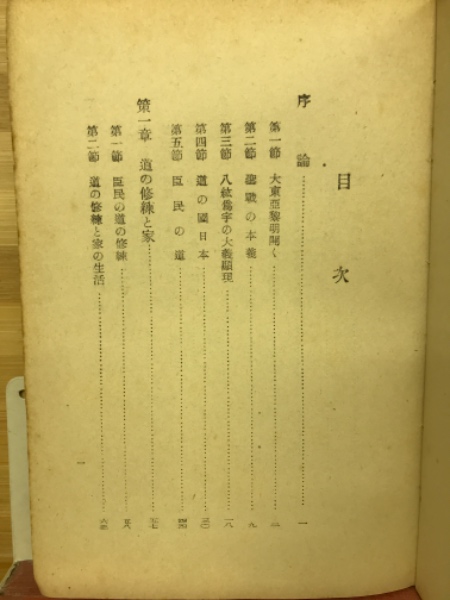 目次
序論 一
第一節 大東亞黎明開く
第二節 聖戰の本義 九
第三節 八紘爲宇の大義顯現 一八
第四節 道の國日本 三〇
第五節 臣民の道
第一章 道の修練と家
第一節 臣民の道の修練
第二節 道の修練と家の生活
一